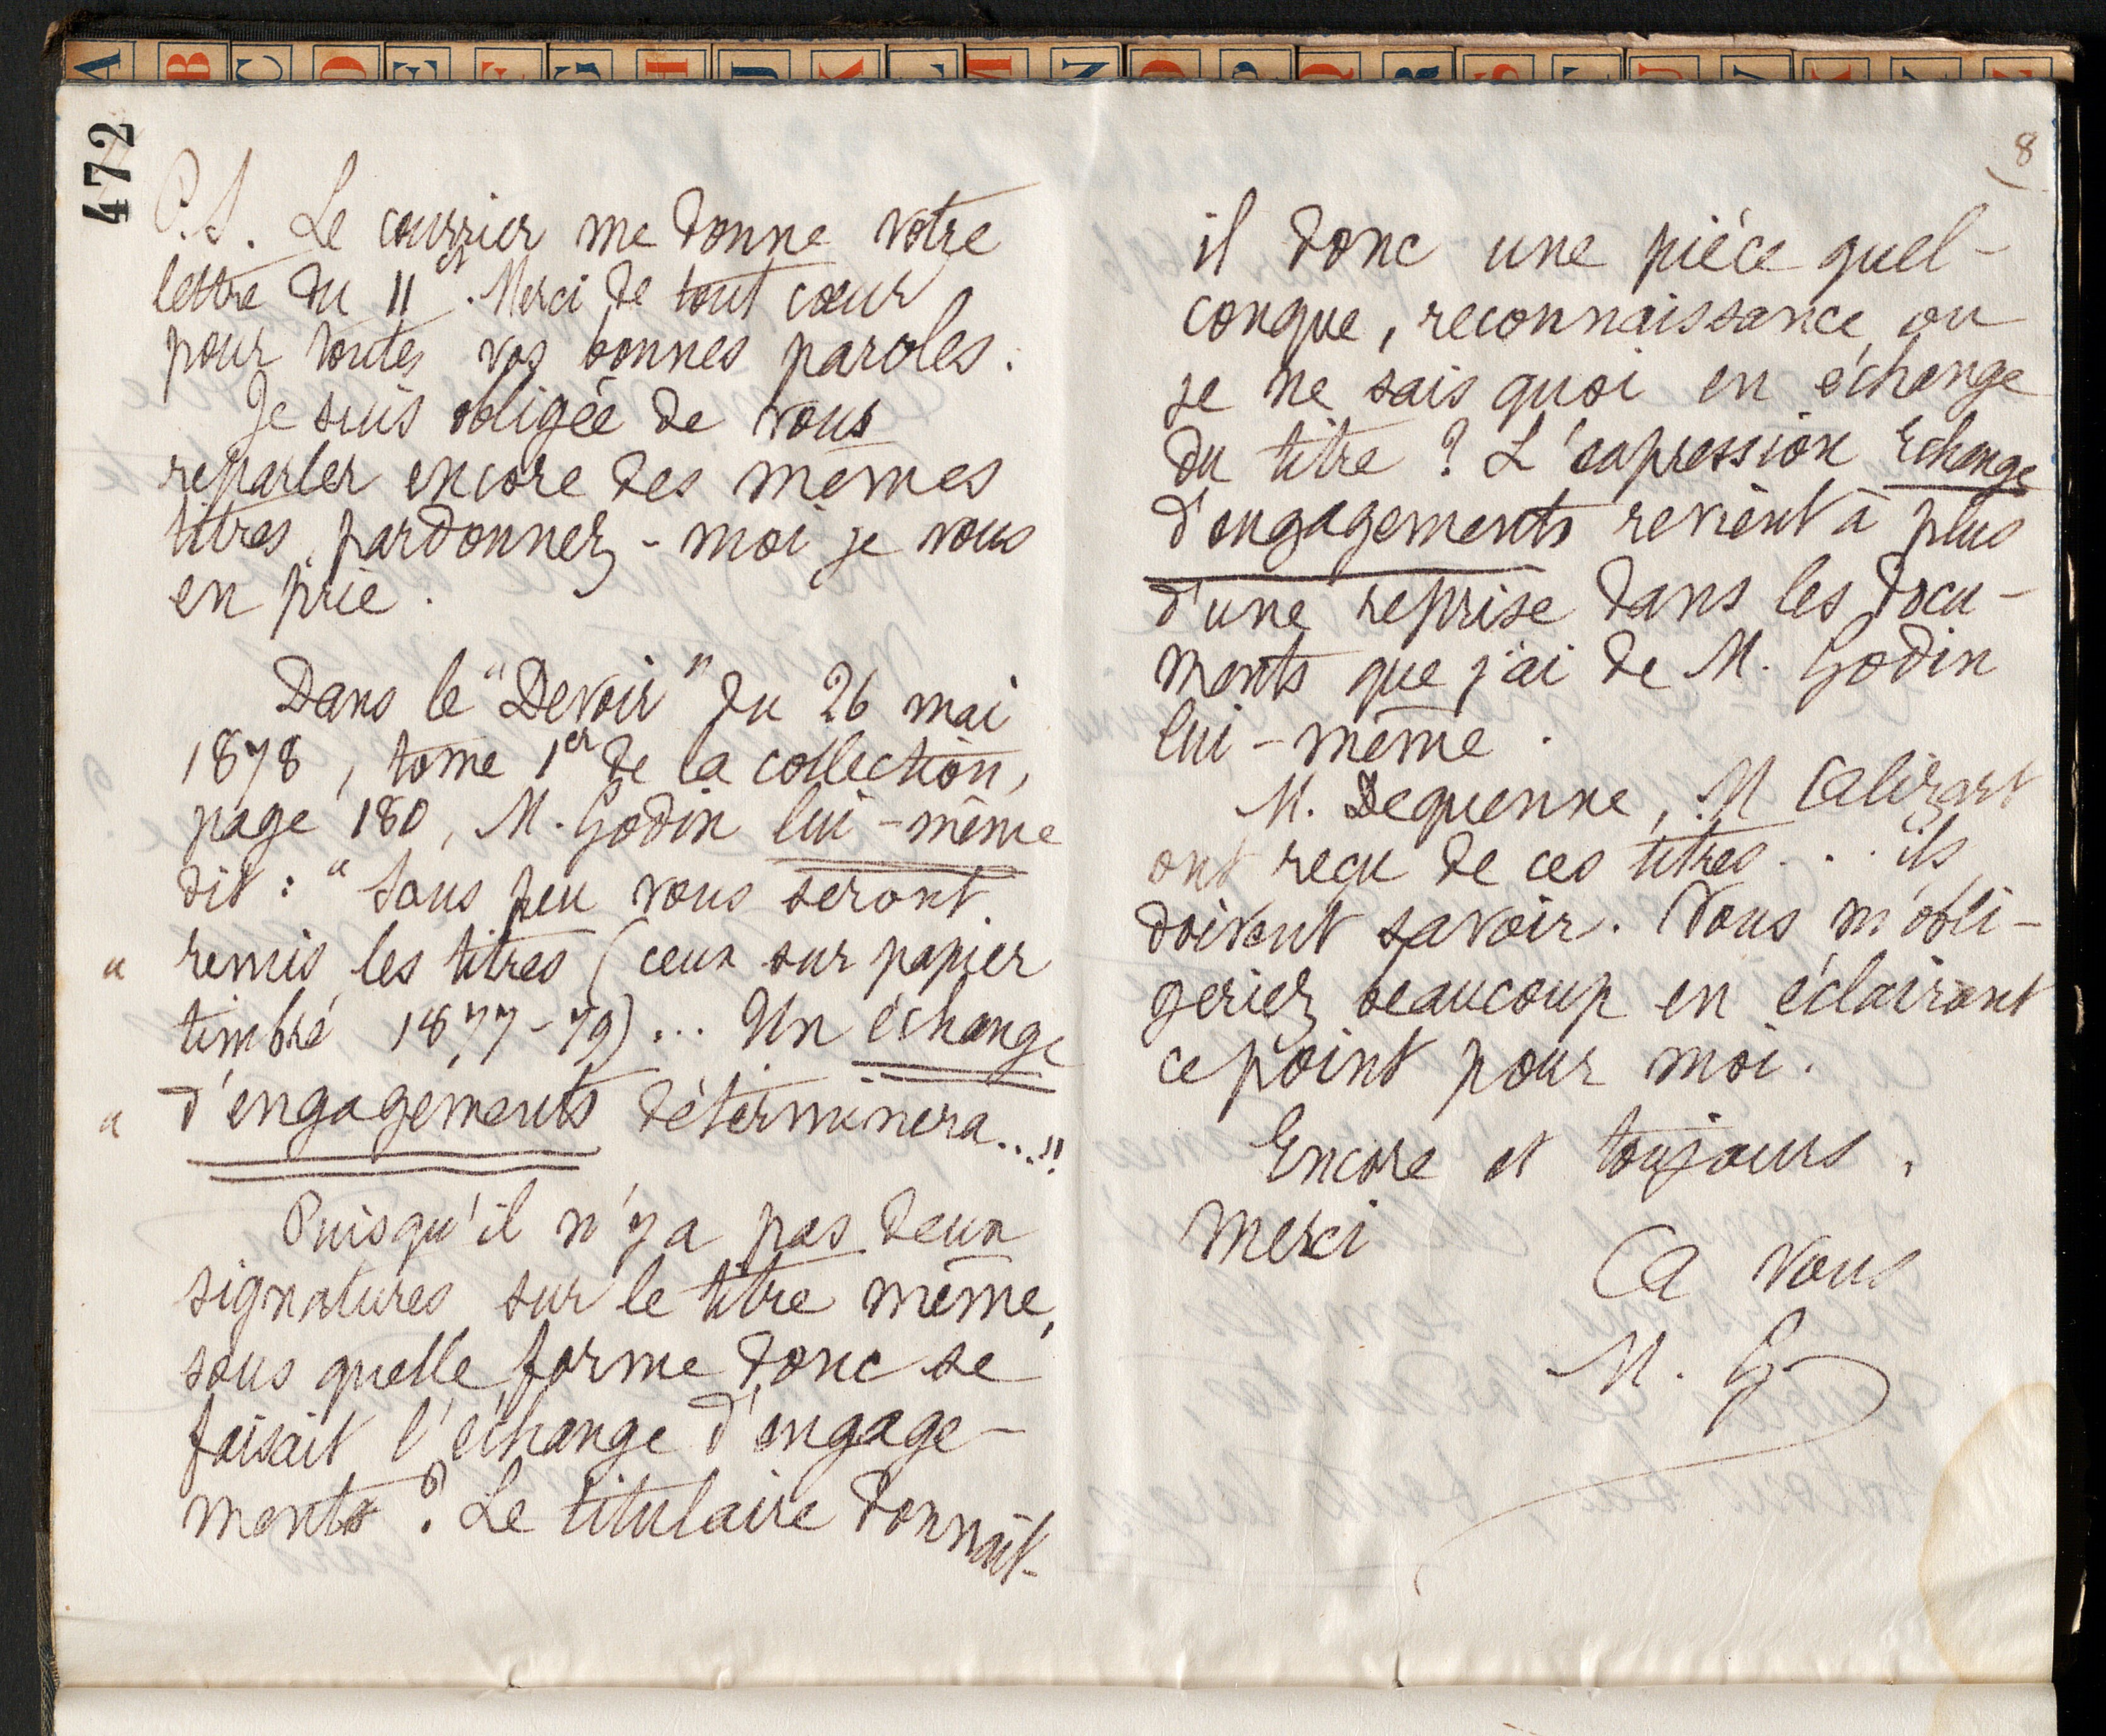 A B C D E F G H IJ K L M N O P Q R S T U V X Y Z
472
P.S. Le courrier me donne votre
lettre du 11. Merci de tout cœur
pour toutes vos bonnes paroles.
Je suis obligée de vous
reparler encore des mêmes
titres, pardonnez-moi je vous
en prie.
Dans le "Devoir" du 26 mai
1878, tome 1er de la collection,
page 180, M. Godin lui-même
dit : "Sous peu vous seront
" remis les titres (ceux sur papier
timbré 1877-79)... Un échange
" d'engagements déterminera..."
Puisqu'il n'y a pas deux
signatures sur le titre même,
sous quelle forme donc se
faisait l'échange d'engage-
ments ? Le titulaire donnait-
8
il donc une pièce quel-
conque, reconnaissance ou
je ne sais quoi en échange
du titre ? L'expression Echange
d'engagements revient à plus
d'une reprise dans les docu-
ments que j'ai de M. Godin
lui-même.
M. Dequenne, M Alizart
ont reçu de ces titres... ils
doivent savoir. Vous m'obli-
geriez beaucoup en éclairant
ce point pour moi.
Encore et toujours,
merci
A vous
M. G.